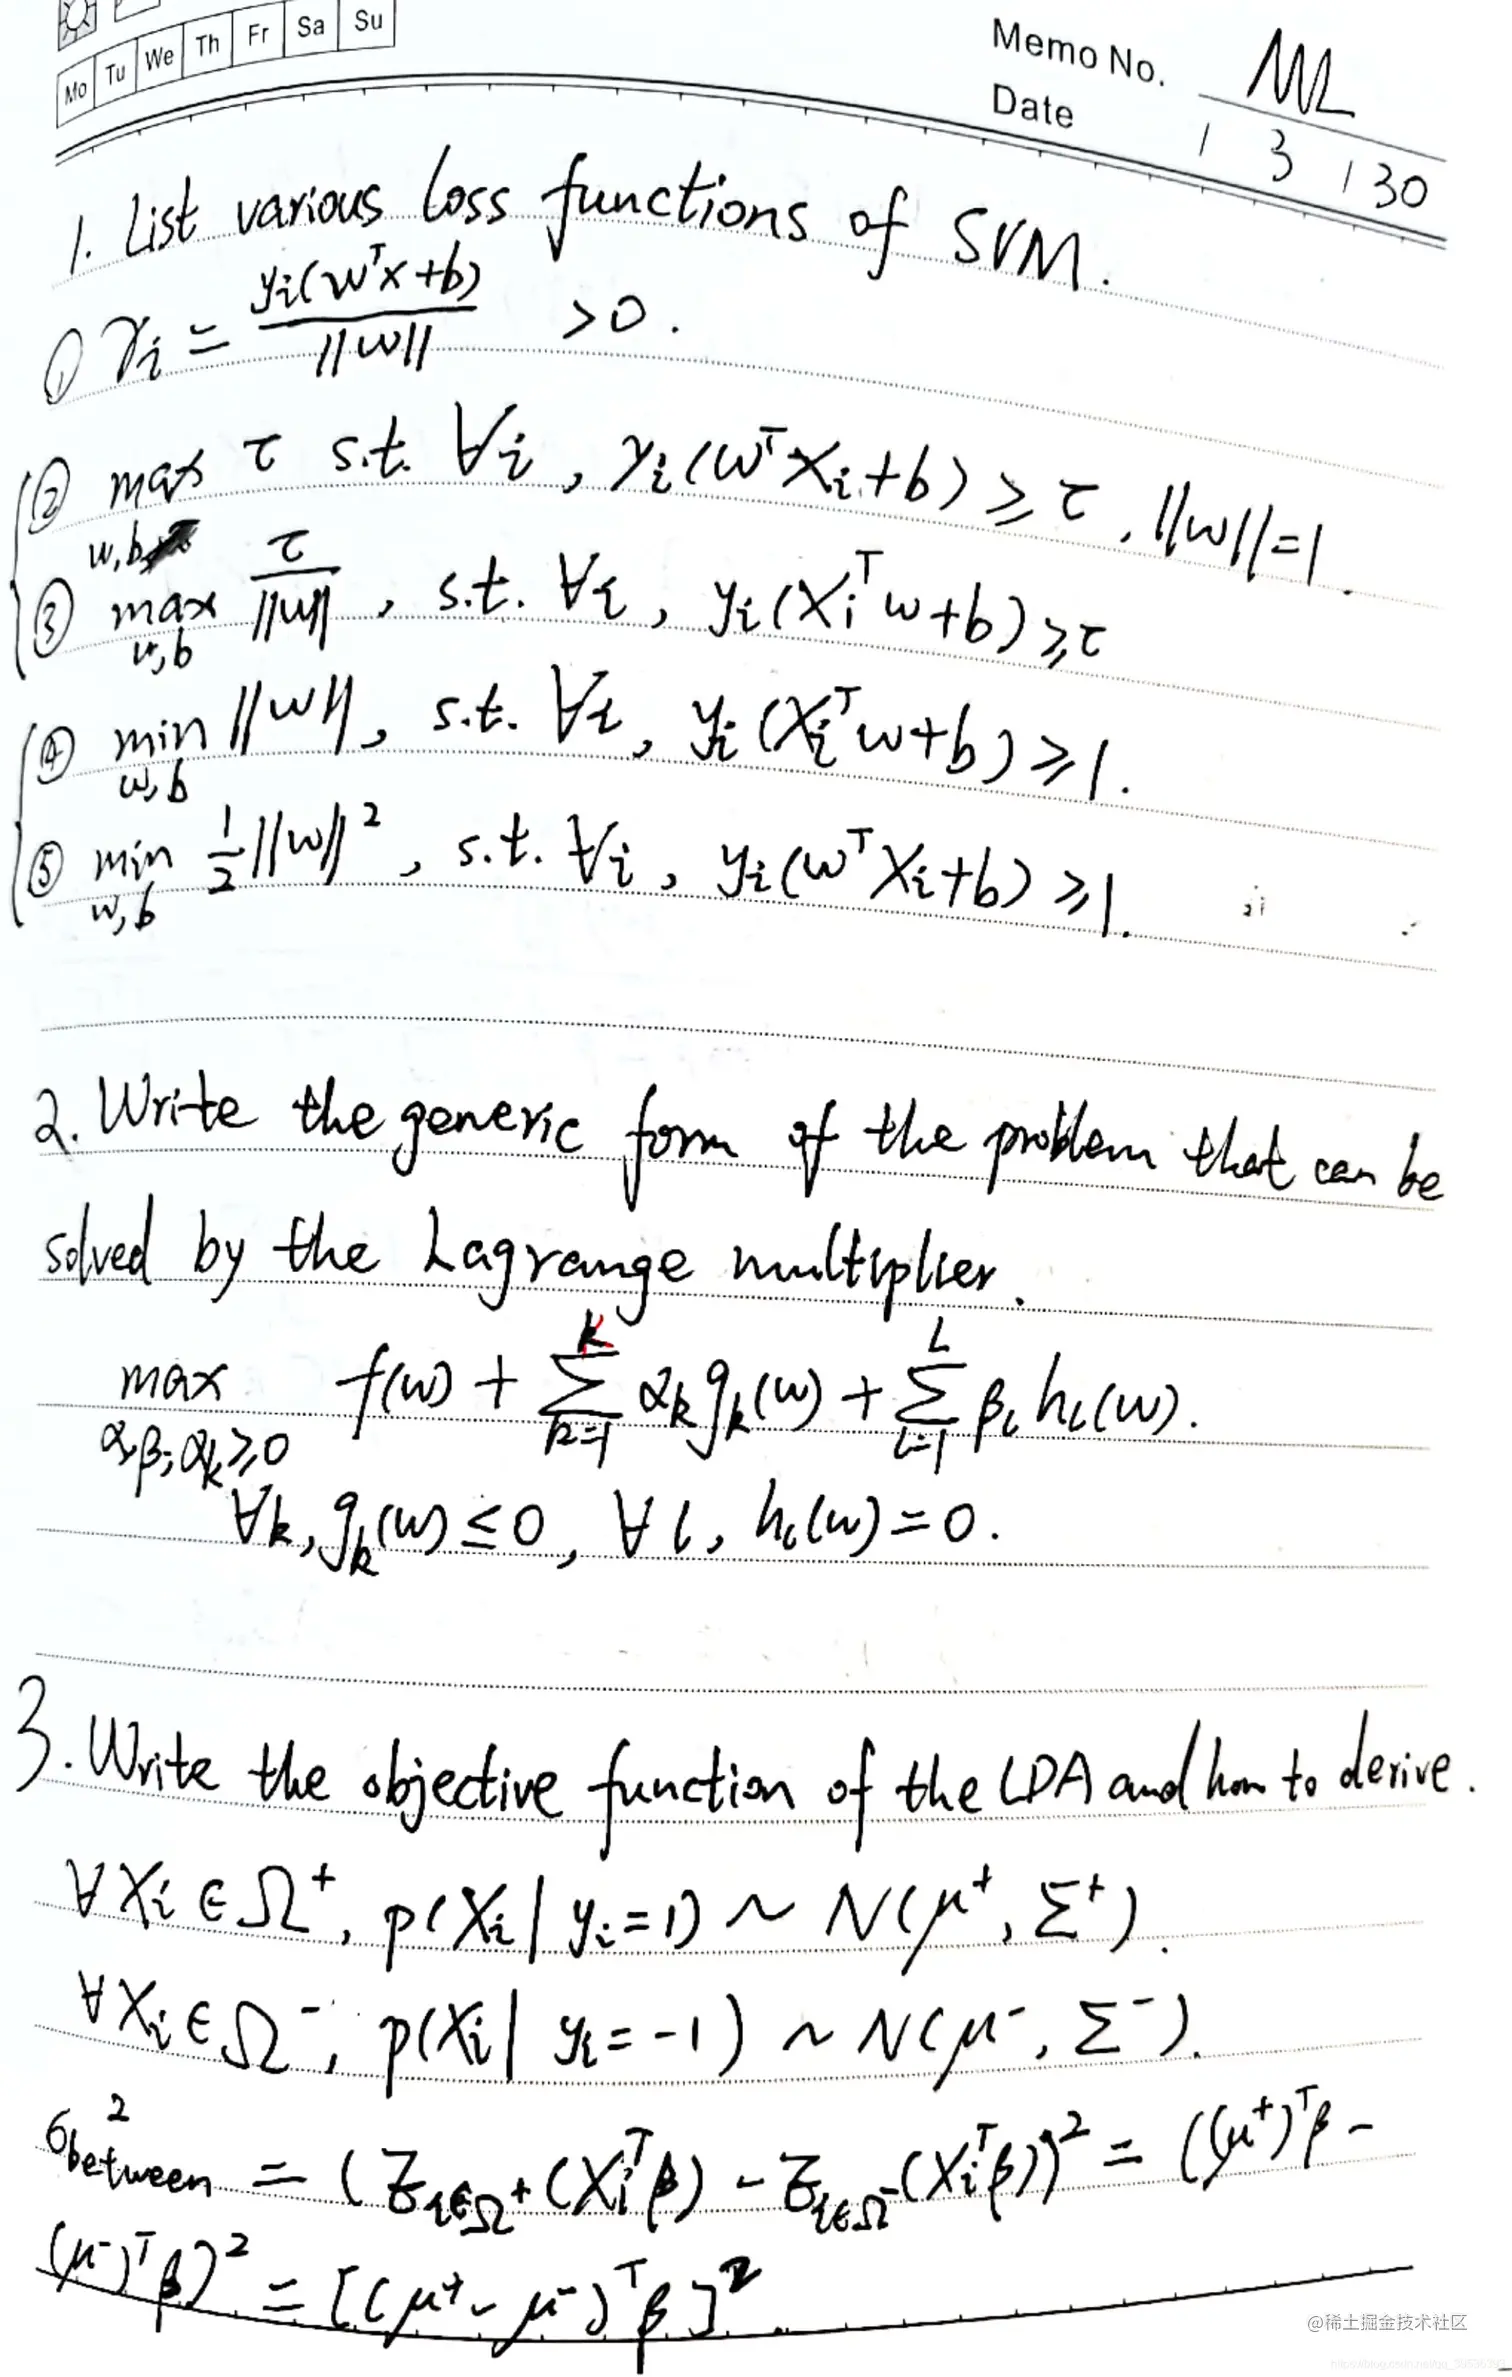 Mo Tu We Th Fr Sa Su
Memo No. ML
Date / 3 / 30
1. List various loss functions of SVM.
① γi = yi(wᵀx+b) / ||w|| >0.
② max w,b τ s.t. ∀i, yi(wᵀxi+b) ≥ τ, ||w||=1.
③ max w,b τ/||w||, s.t. ∀i, yi(xiᵀw+b) ≥ τ
④ min w,b ||w||, s.t. ∀i, yi(xiᵀw+b) ≥ 1.
⑤ min w,b ½||w||², s.t. ∀i, yi(wᵀxi+b) ≥ 1.
2. Write the generic form of the problem that can be
solved by the Lagrange multiplier.
max α,β;αk≥0 f(w) + Σ k=1 K αk gk(w) + Σ l=1 L βl hl(w).
∀k, gk(w) ≤ 0, ∀l, hl(w) = 0.
3. Write the objective function of the LDA and how to derive.
∀xi ∈ Ω⁺, p(xi | yi=1) ~ N(μ⁺, Σ⁺).
∀xi ∈ Ω⁻, p(xi | yi=-1) ~ N(μ⁻, Σ⁻).
σ²between = (E i∈Ω⁺(xiᵀβ) - E i∈Ω⁻(xiᵀβ))² = ((μ⁺)ᵀβ -
(μ⁻)ᵀβ)² = [(μ⁺ - μ⁻)ᵀβ]².
@稀土掘金技术社区